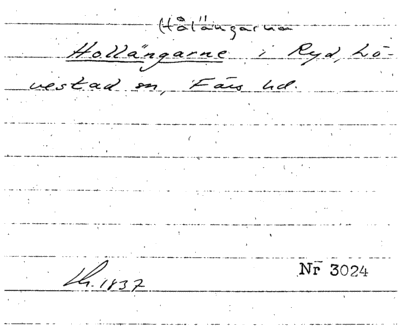 (Hålängarna
Hollängarne i Ryd, Lö-
vestad sn, Färs hd.
Lh. 1837
Nr 3024